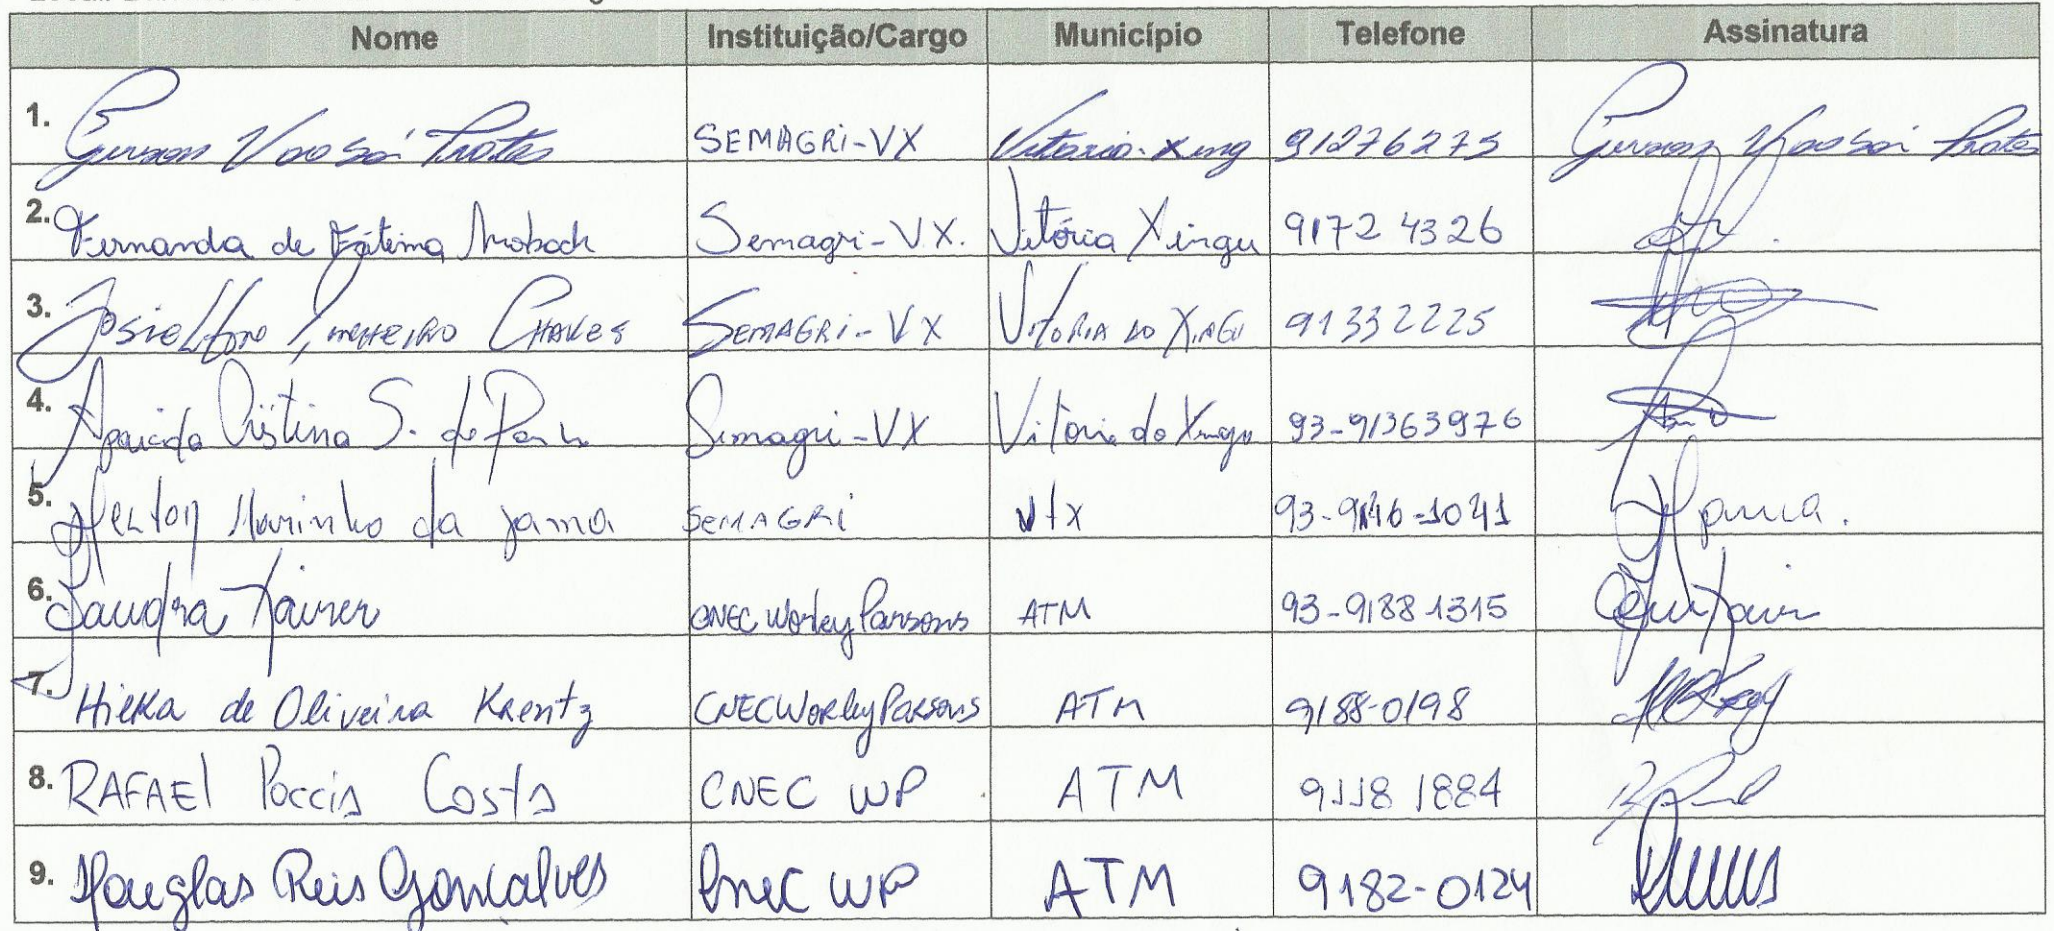 Nome Instituição/Cargo Município Telefone Assinatura
1. Prates SEMAGRI-VX Vitoria-Xing 91276275 Prates
2. Fernanda de Fátima Semagri-V.X. Vitória Xingu 9172 4326
3. CHAVES SEMAGRI-VX VITORIA DO XINGU 91332225
4. Aparecida Cristina S. de Semagri-VX Vitória do Xingu 93-91363976
5. Marinho da SEMAGRI VTX
6. Sandra Xavier CNEC WorleyParsons ATM 93-9188 1315
7. Hilka de Oliveira Krentz CNECWorleyParsons ATM 9188-0198
8. RAFAEL Poccia Costa CNEC WP ATM 9118 1884
9. Douglas Reis Gonçalves Cnec WP ATM 9182-0124